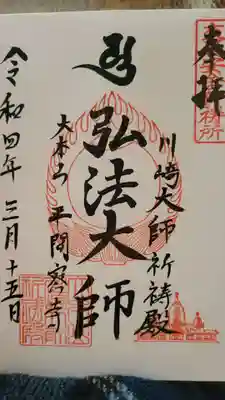 奉拝
川崎大師祈祷殿
弘法大師
大本山平間寺
令和四年三月十五日